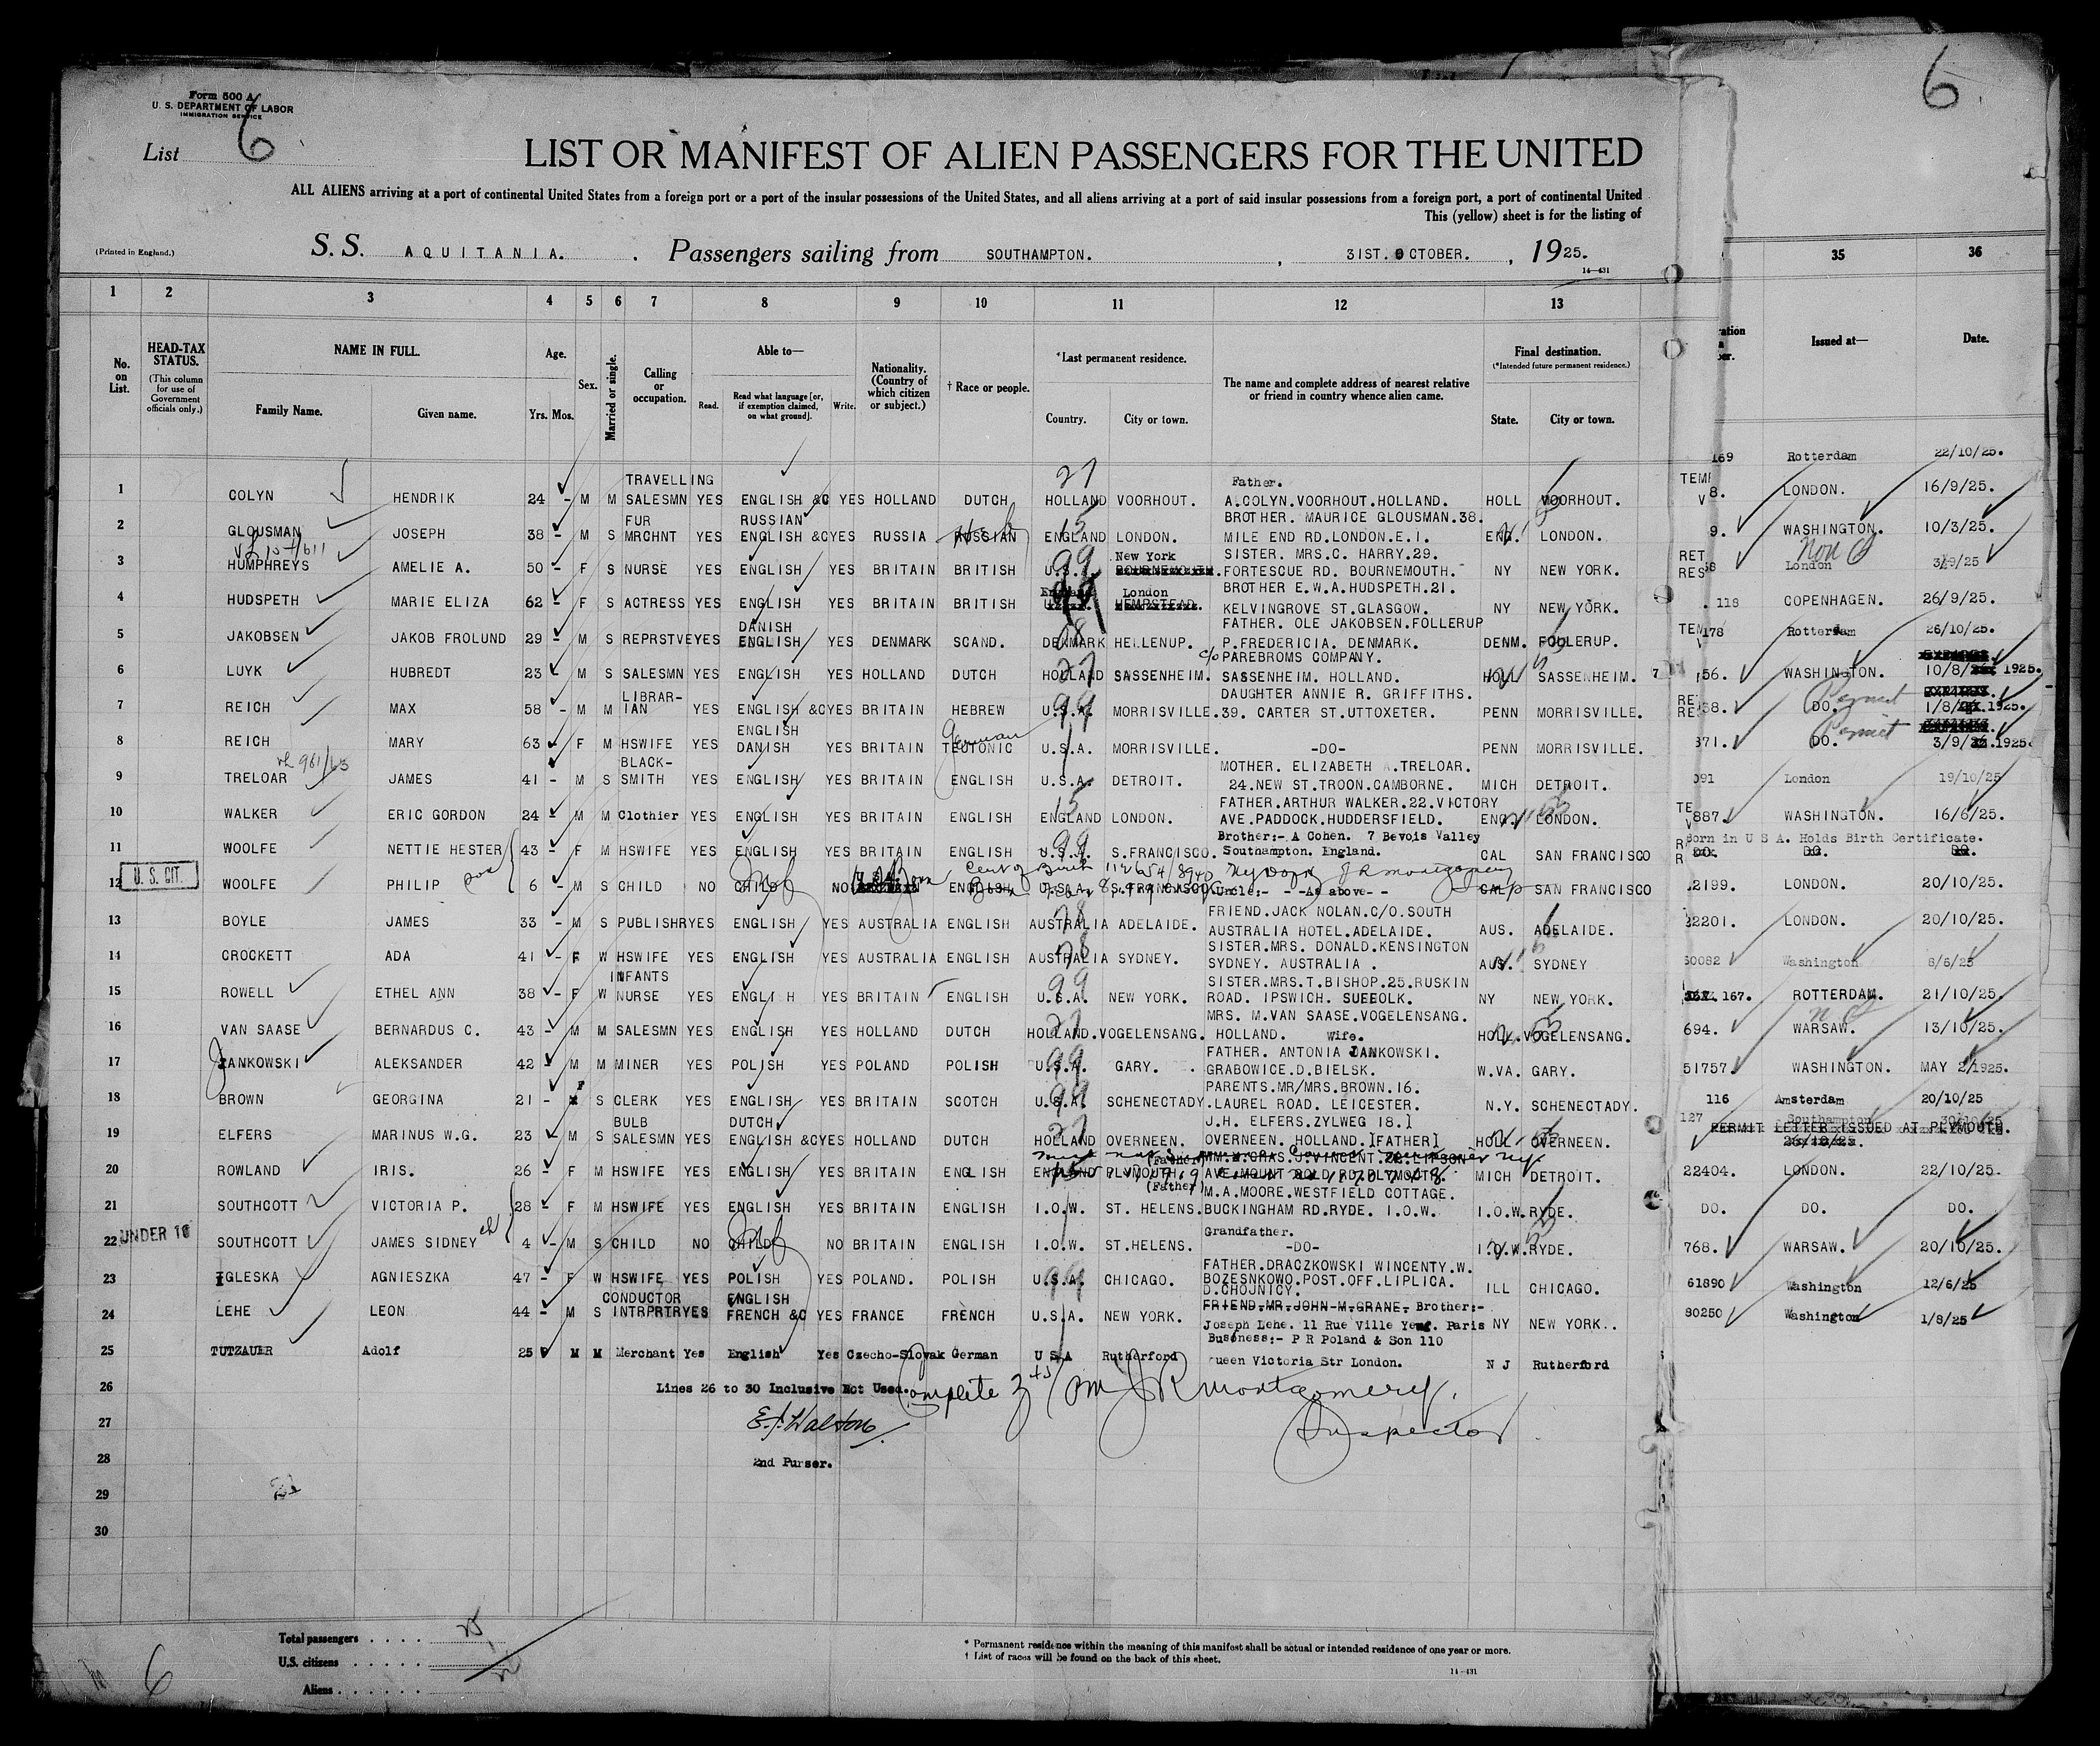 Form 500 A
U. S. DEPARTMENT OF LABOR
IMMIGRATION SERVICE
List 6
6
LIST OR MANIFEST OF ALIEN PASSENGERS FOR THE UNITED
ALL ALIENS arriving at a port of continental United States from a foreign port or a port of the insular possessions of the United States, and all aliens arriving at a port of said insular possessions from a foreign port, a port of continental United
This (yellow) sheet is for the listing of
(Printed in England.) S. S. AQUITANIA. Passengers sailing from SOUTHAMPTON. , 31ST. OCTOBER. , 1925.
14—431
1 2 3 4 5 6 7 8 9 10 11 12 13 35 36
No. on List. HEAD-TAX STATUS. (This column for use of Government officials only.) NAME IN FULL. Family Name. Given name. Age. Yrs. Mos. Sex. Married or single. Calling or occupation. Able to— Read. Read what language [or, if exemption claimed, on what ground]. Write. Nationality. (Country of which citizen or subject.) † Race or people. *Last permanent residence. Country. City or town. The name and complete address of nearest relative or friend in country whence alien came. Final destination. (*Intended future permanent residence.) State. City or town. Issued at— Date.
169 Rotterdam 22/10/25.
TRAVELLING Father.
1 COLYN HENDRIK 24 - M M SALESMN YES ENGLISH &C YES HOLLAND DUTCH HOLLAND VOORHOUT. A.COLYN.VOORHOUT.HOLLAND. HOLL VOORHOUT. 8. LONDON. 16/9/25.
FUR RUSSIAN BROTHER. MAURICE GLOUSMAN.38.
2 GLOUSMAN JOSEPH 38 - M S MRCHNT YES ENGLISH &C YES RUSSIA RUSSIAN ENGLAND LONDON. MILE END RD.LONDON.E.I. ENG. LONDON. 9. WASHINGTON. 10/3/25.
New York SISTER. MRS.C. HARRY.29.
3 HUMPHREYS AMELIE A. 50 - F S NURSE YES ENGLISH YES BRITAIN BRITISH U.S.A. BOURNEMOUTH. FORTESCUE RD. BOURNEMOUTH. NY NEW YORK. London
England London BROTHER E.W.A.HUDSPETH.21.
4 HUDSPETH MARIE ELIZA 62 - F S ACTRESS YES ENGLISH YES BRITAIN BRITISH HEMPSTEAD. KELVINGROVE ST.GLASGOW. NY NEW YORK. 118 COPENHAGEN. 26/9/25.
DANISH FATHER. OLE JAKOBSEN.FOLLERUP
5 JAKOBSEN JAKOB FROLUND 29 - M S REPRSTVE YES ENGLISH YES DENMARK SCAND. DENMARK HELLENUP. P.FREDERICIA. DENMARK. DENM. FOLLERUP. 178 Rotterdam 26/10/25.
c/o PAREBROMS COMPANY.
6 LUYK HUBREDT 23 M S SALESMN YES ENGLISH YES HOLLAND DUTCH HOLLAND SASSENHEIM. SASSENHEIM. HOLLAND. HOLL SASSENHEIM. 56. WASHINGTON. 10/8/ 1925.
LIBRAR- DAUGHTER ANNIE R. GRIFFITHS. Permit
7 REICH MAX 58 - M M IAN YES ENGLISH &C YES BRITAIN HEBREW U.S.A. MORRISVILLE. 39. CARTER ST.UTTOXETER. PENN MORRISVILLE. 38. DO. 1/8/ .1925.
ENGLISH German Permit
8 REICH MARY 63 F M HSWIFE YES DANISH YES BRITAIN TEUTONIC U.S.A. MORRISVILLE. -DO- PENN MORRISVILLE. 371. DO. 3/9/ .1925.
BLACK- MOTHER. ELIZABETH A.TRELOAR.
9 TRELOAR JAMES 41 - M S SMITH YES ENGLISH YES BRITAIN ENGLISH U.S.A. DETROIT. 24.NEW ST.TROON.CAMBORNE. MICH DETROIT. 091 London 19/10/25
FATHER.ARTHUR WALKER.22.VICTORY
10 WALKER ERIC GORDON 24 - M M Clothier YES ENGLISH YES BRITAIN ENGLISH ENGLAND LONDON. AVE.PADDOCK.HUDDERSFIELD. ENG. LONDON. 887. WASHINGTON. 16/6/25.
Brother:- A Cohen. 7 Bevois Valley Born in U S A. Holds Birth Certificate.
11 WOOLFE NETTIE HESTER 43 - F M HSWIFE YES ENGLISH YES BRITAIN ENGLISH U.S.A. S.FRANCISCO. Southampton. England. CAL SAN FRANCISCO DO. DO. DO.
12 U. S. CIT. WOOLFE PHILIP son 6 - M S CHILD NO CHILD NO ENGLISH U.S.A. S.FRANCISCO Uncle:- - -As above- - CAL SAN FRANCISCO 2199. LONDON. 20/10/25.
FRIEND.JACK NOLAN.C/O.SOUTH
13 BOYLE JAMES 33 - M S PUBLISHR YES ENGLISH YES AUSTRALIA ENGLISH AUSTRALIA ADELAIDE. AUSTRALIA HOTEL.ADELAIDE. AUS. ADELAIDE. 22201. LONDON. 20/10/25.
SISTER.MRS. DONALD.KENSINGTON
14 CROCKETT ADA 41 - F W HSWIFE YES ENGLISH YES AUSTRALIA ENGLISH AUSTRALIA SYDNEY. SYDNEY. AUSTRALIA . AUS. SYDNEY 60082 Washington 8/6/25
INFANTS SISTER.MRS.T.BISHOP.25.RUSKIN
15 ROWELL ETHEL ANN 38 - F W NURSE YES ENGLI H YES BRITAIN ENGLISH U.S.A. NEW YORK. ROAD. IPSWICH. SUFFOLK. NY NEW YORK. 167. ROTTERDAM. 21/10/25.
MRS. M.VAN SAASE.VOGELENSANG.
16 VAN SAASE BERNARDUS C. 43 - M M SALESMN YES ENGLISH YES HOLLAND DUTCH HOLLAND. VOGELENSANG. HOLLAND. Wife. HOLL. VOGELENSANG. 694. WARSAW. 13/10/25.
FATHER. ANTONIA JANKOWSKI.
17 JANKOWSKI ALEKSANDER 42 - M M MINER YES POLISH YES POLAND POLISH U.S.A. GARY. GRABOWICE.D.BIELSK. W.VA. GARY. 51757. WASHINGTON. MAY 2/1925.
PARENTS.MR/MRS.BROWN.16.
18 BROWN GEORGINA 21 - F S CLERK YES ENGLISH YES BRITAIN SCOTCH U.S.A. SCHENECTADY. LAUREL ROAD. LEICESTER. N.Y. SCHENECTADY. 116 Amsterdam 20/10/25
BULB DUTCH J.H. ELFERS.ZYLWEG 18.] 127 Southampton 30/10/25
19 ELFERS MARINUS W.G. 23 - M S SALESMN YES ENGLISH &C YES HOLLAND DUTCH HOLLAND OVERNEEN. OVERNEEN. HOLLAND.[FATHER] HOLL OVERNEEN. PERMIT LETTER ISSUED AT PLYMOUTH.
(Father)
20 ROWLAND IRIS. 26 - F M HSWIFE YES ENGLISH YES BRITAIN ENGLISH ENGLAND PLYMOUTH. MICH DETROIT. 22404. LONDON. 22/10/25.
(Father) M.A.MOORE.WESTFIELD COTTAGE.
21 SOUTHCOTT VICTORIA P. 28 - F M HSWIFE YES ENGLISH YES BRITAIN ENGLISH I.O.W. ST. HELENS. BUCKINGHAM RD.RYDE. I.O.W. I.O.W. RYDE. DO. DO. DO.
UNDER 16 Grandfather.
22 SOUTHCOTT JAMES SIDNEY 4 - M S CHILD NO CHILD NO BRITAIN ENGLISH I.O.W. ST.HELENS. -DO- I.O.W. RYDE. 768. WARSAW. 20/10/25.
FATHER.DRACZKOWSKI WINCENTY.W.
23 IGLESKA AGNIESZKA 47 - F W HSWIFE YES POLISH YES POLAND. POLISH U.S.A. CHICAGO. BOZESNKOWO.POST.OFF.LIPLICA. D.CHOJNICY. ILL CHICAGO. 61890 Washington 12/6/25
CONDUCTOR ENGLISH FRIEND.MR.JOHN M.CRANE. Brother:-
24 LEHE LEON 44 - M S INTRPRTR YES FRENCH &C YES FRANCE FRENCH U.S.A. NEW YORK. Joseph Lehe. 11 Rue Ville Paris NY NEW YORK.. 80250 Washington 1/8/25
Business:- P R Poland & Son 110
25 TUTZAUER Adolf 25 M M Merchant Yes English Yes Czecho-Slovak German U S A Rutherford ueen Victoria Str London. N J Rutherford
26 Lines 26 to 30 Inclusive Not Used. Complete J R Montgomery.
27 E. J. Walton Inspector
28 2nd Purser.
29
30
Total passengers . . . . 25
U.S. citizens . . . . .
Aliens . . . . . .
* Permanent residence within the meaning of this manifest shall be actual or intended residence of one year or more.
† List of races will be found on the back of this sheet.
14—431
6